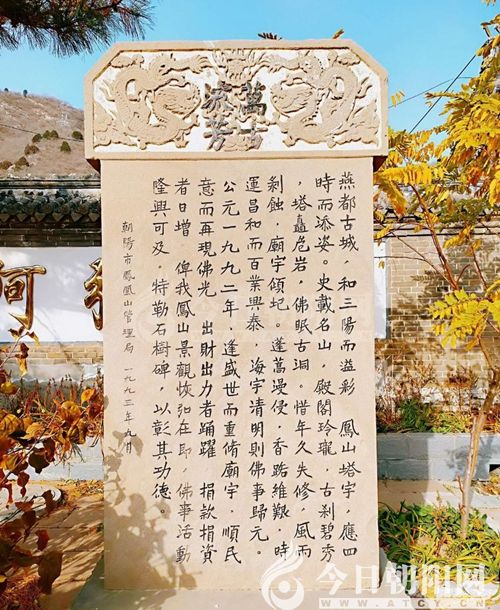 萬古
流芳
燕都古城,和三陽而溢彩 鳳山塔宇,應四
時而添姿。史載名山,殿閣玲瓏,古剎碧秀
,塔矗危岩,佛眠古洞。惜年久失修,風雨
剝蝕,廟宇傾圮。蓬蒿漫侵,香路維艱,時
運昌和而百業興泰,海宇清明則佛事歸元。
公元一九九二年,逢盛世而重脩廟宇,順民
意而再現佛光 出財出力者踴躍 捐款捐資
者日增 俾我鳳山景觀恢弘在即,佛事活動
隆興可及,特勒石樹碑,以彰其功德。
朝陽市鳳凰山管理局 一九九三年九月
河
今日朝阳网